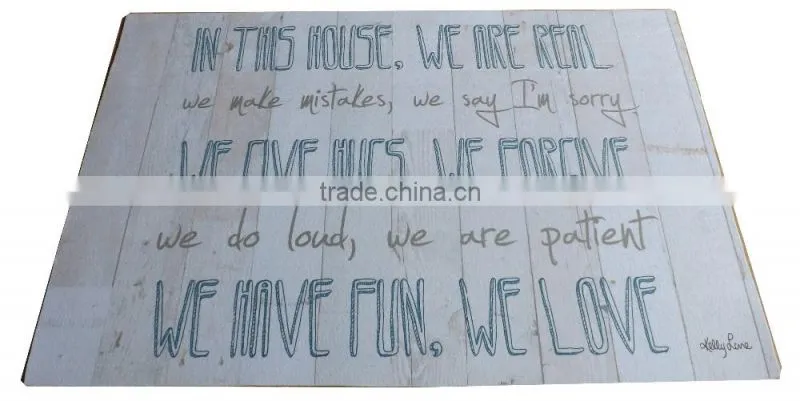 IN THIS HOUSE, WE ARE REAL
we make mistakes, we say I'm sorry
WE GIVE HUGS, WE FORGIVE
trade.china.cn
we do loud, we are patient
WE HAVE FUN, WE LOVE
Kelly Lane